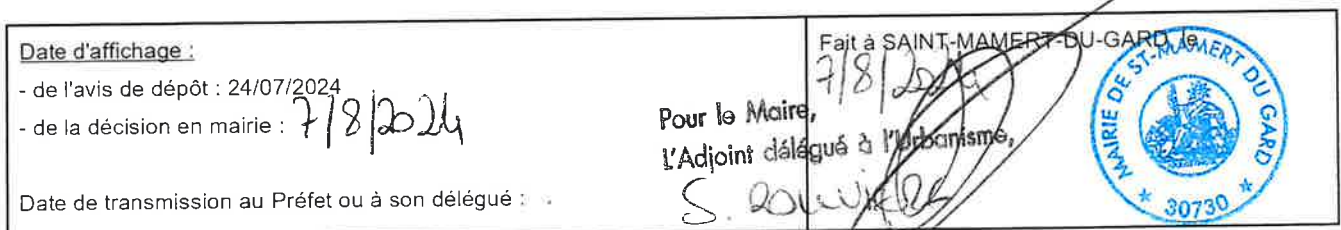 Date d'affichage :
- de l'avis de dépôt : 24/07/2024
- de la décision en mairie : 7/8/2024
Date de transmission au Préfet ou à son délégué :
Fait à SAINT-MAMERT-DU-GARD, le
7/8/2024
Pour le Maire,
L'Adjoint délégué à l'Urbanisme,
S.
MAIRIE DE ST-MAMERT DU GARD
* 30730 *